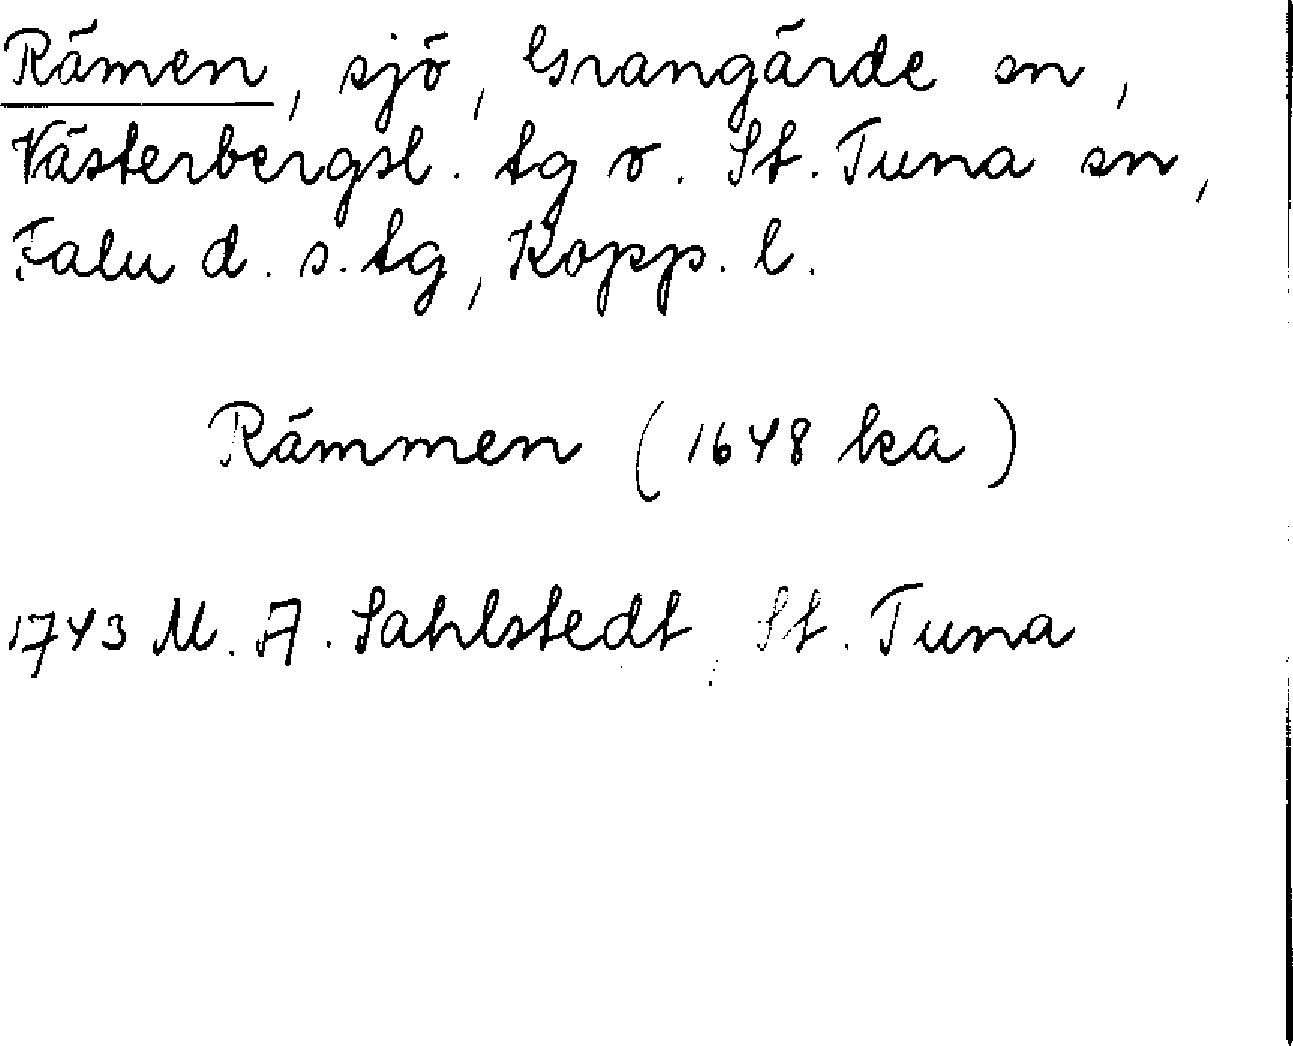 Rämen, sjö, Grangärde sn,
Västerbergsl. tg o. St. Tuna sn,
Falu d. s. tg, Kopp. l.
Rämmen (1648 ka)
1743 M. A. Sahlstedt, St. Tuna